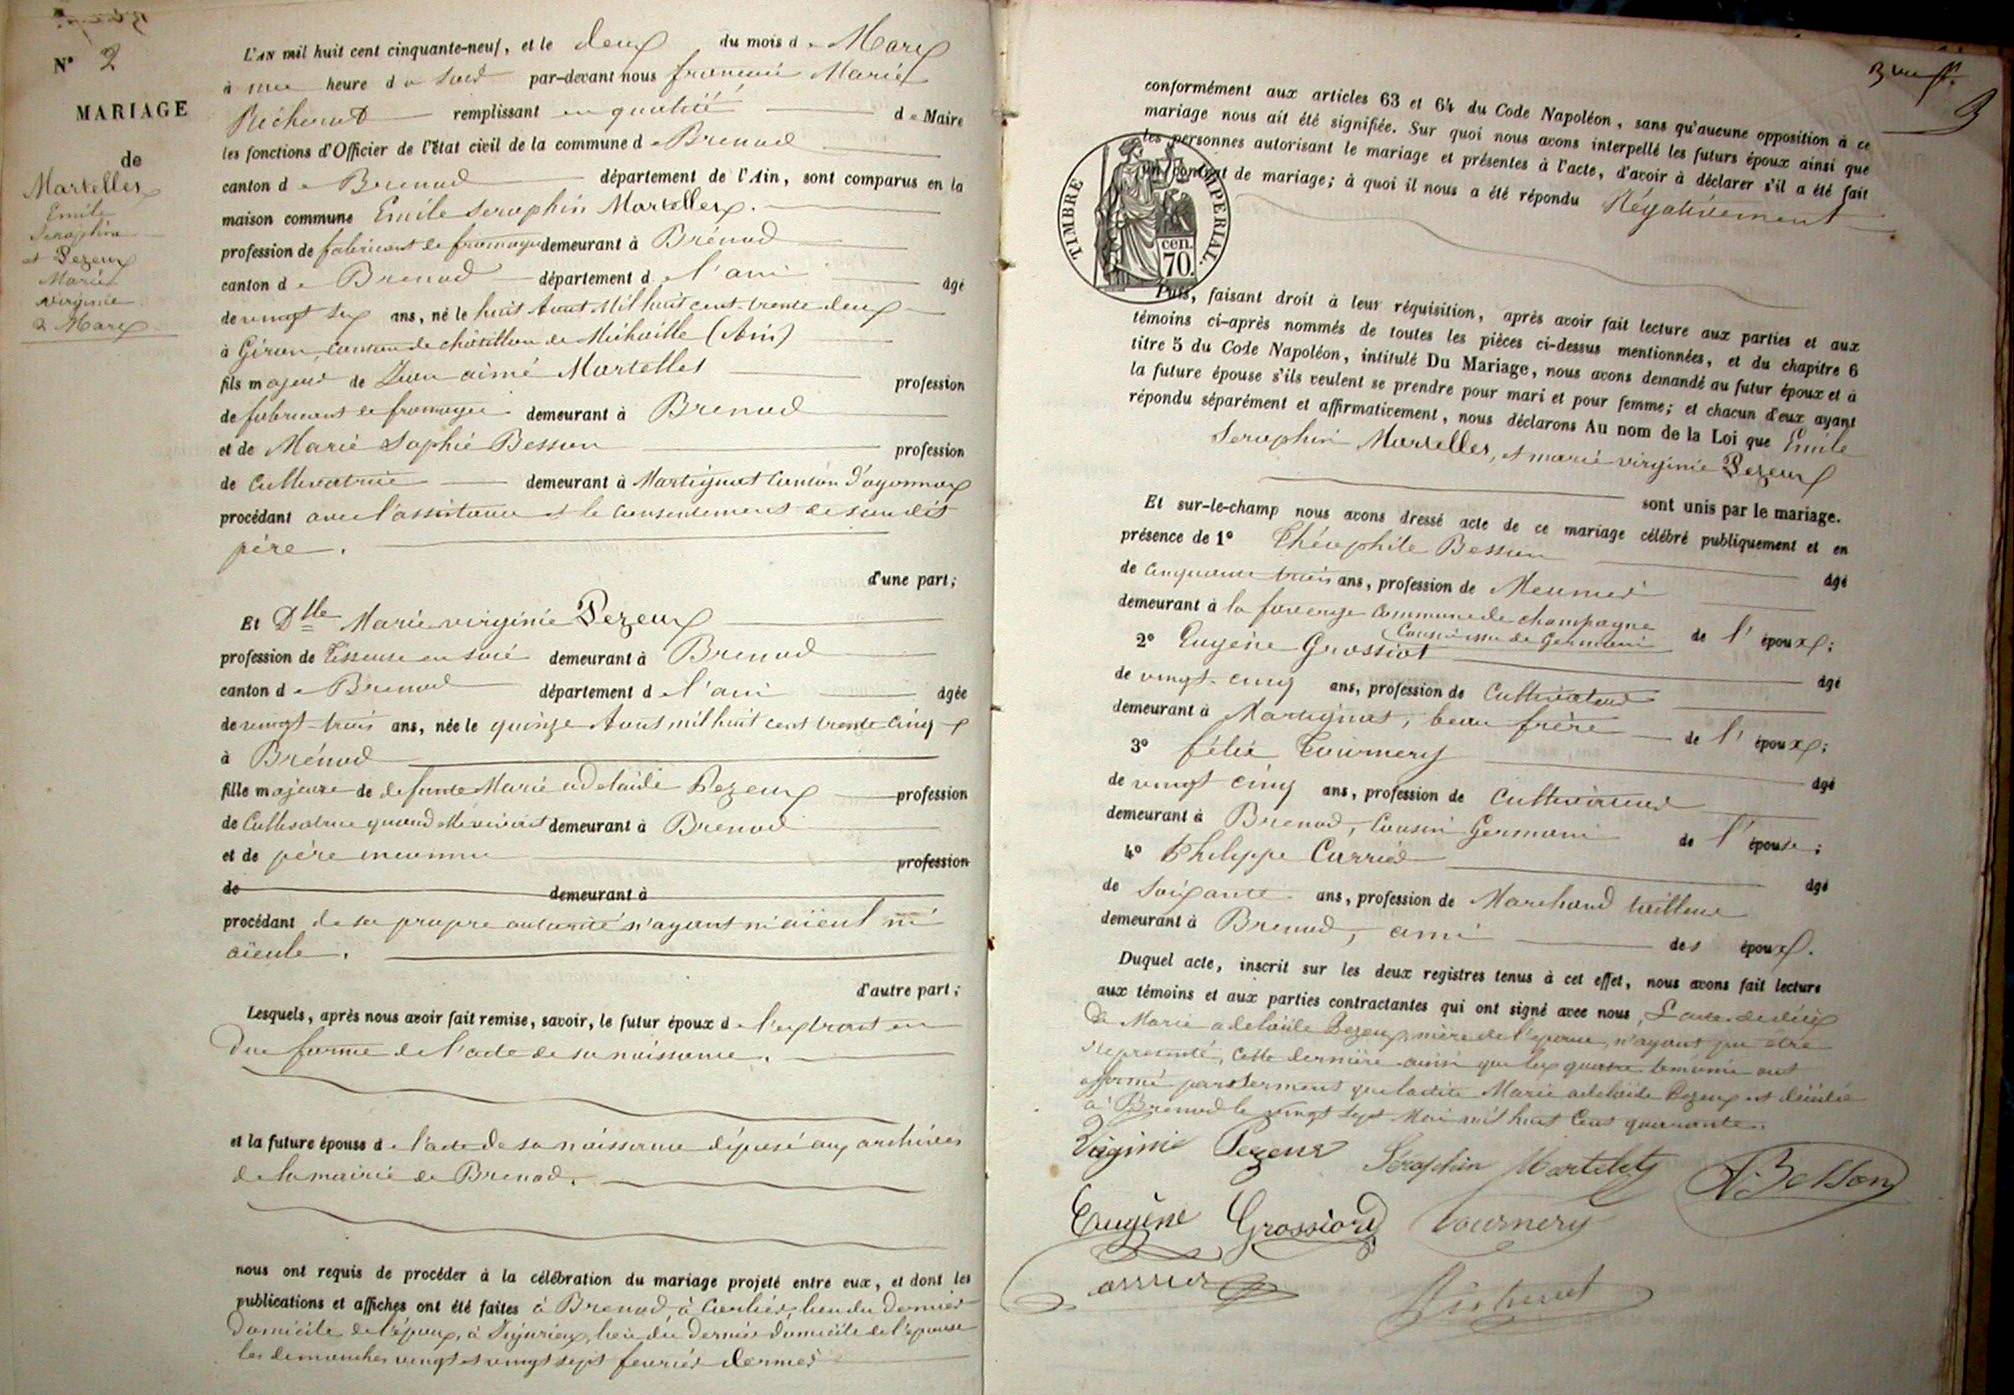 N° 2
MARIAGE
de
Martellex
Emile
Séraphin
et Pezeux
Marie
Virginie
2 Marx
L'AN mil huit cent cinquante-neuf, et le deux du mois de Marx
à une heure du soir par-devant nous françois Marie
Richerot remplissant en qualité de Maire
les fonctions d'Officier de l'état civil de la commune de Brenod
canton de Brenod département de l'Ain, sont comparus en la
maison commune Emile Seraphin Martellex.
profession de fabricant de fromages demeurant à Brénod
canton de Brenod département de l'ain âgé
de vingt six ans, né le huit Aout mil huit cent trente deux
à Giron, canton de châtillon de Michaille (Ain)
fils majeur de Jean aimé Martellet profession
de fabricant de fromages demeurant à Brenod
et de Marie Sophie Besson profession
de Cultivatrice demeurant à Martignat Canton d'oyonnax
procédant avec l'assistance et le consentement de son dit
père.
d'une part;
Et Dlle Marie virginie Pezeux
profession de Tisseuse en soie demeurant à Brenod
canton de Brenod département de l'ain âgée
de vingt-trois ans, née le quinze Aout mil huit cent trente cinq
à Brénod
fille majeure de defunte Marie adelaïde Pezeux profession
de Cultivatrice quand elle vivait demeurant à Brenod
et de père inconnu profession
de demeurant à
procédant de sa propre autorité n'ayant ni aïeul ni
aïeule.
d'autre part;
Lesquels, après nous avoir fait remise, savoir, le futur époux de l'extrait en
due forme de l'acte de sa naissance.
et la future épouse de l'acte de sa naissance déposé aux archives
de la mairie de Brenod.
nous ont requis de procéder à la célébration du mariage projeté entre eux, et dont les
publications et affiches ont été faites à Brenod, à Corlier, lieu du dernier
domicile de l'époux, à Jujurieux, lieu du dernier domicile de l'épouse
les dimanches vingt et vingt sept fevrier dernier
3
conformément aux articles 63 et 64 du Code Napoléon, sans qu'aucune opposition à ce
mariage nous ait été signifiée. Sur quoi nous avons interpellé les futurs époux ainsi que
les personnes autorisant le mariage et présentes à l'acte, d'avoir à déclarer s'il a été fait
un contrat de mariage; à quoi il nous a été répondu Négativement
TIMBRE IMPERIAL.
cen.
70.
Puis, faisant droit à leur réquisition, après avoir fait lecture aux parties et aux
témoins ci-après nommés de toutes les pièces ci-dessus mentionnées, et du chapitre 6
titre 5 du Code Napoléon, intitulé Du Mariage, nous avons demandé au futur époux et à
la future épouse s'ils veulent se prendre pour mari et pour femme; et chacun d'eux ayant
répondu séparément et affirmativement, nous déclarons Au nom de la Loi que Emile
Seraphin Martellex, et marie virginie Pezeux
sont unis par le mariage.
Et sur-le-champ nous avons dressé acte de ce mariage célébré publiquement et en
présence de 1° Théophile Besson âgé
de cinquante trois ans, profession de Meunier
demeurant à la forcerage commune de champagne
Cousin issu de Germain de l'époux;
2° Eugène Grossiot âgé
de vingt-cinq ans, profession de Cultivateur
demeurant à Martignat, beau frère de l'époux;
3° félix Tournery âgé
de vingt cinq ans, profession de Cultivateur
demeurant à Brenod, Cousin Germain de l'épouse;
4° Philippe Carrier âgé
de Soixante ans, profession de Marchand tailleur
demeurant à Brenod, ami des époux.
Duquel acte, inscrit sur les deux registres tenus à cet effet, nous avons fait lecture
aux témoins et aux parties contractantes qui ont signé avec nous, L'acte de décès
de Marie adelaïde Pezeux, mère de l'épouse, n'ayant pu être
représenté, cette dernière ainsi que les quatre temoins ont
affirmé par serment que ladite Marie adelaïde Pezeux est décédée
à Brenod le vingt sept Mai mil huit cent quarante.
Virginie Pezeux Séraphin Martelet Besson
Eugène Grossiord Tournery
Carrier Richerot